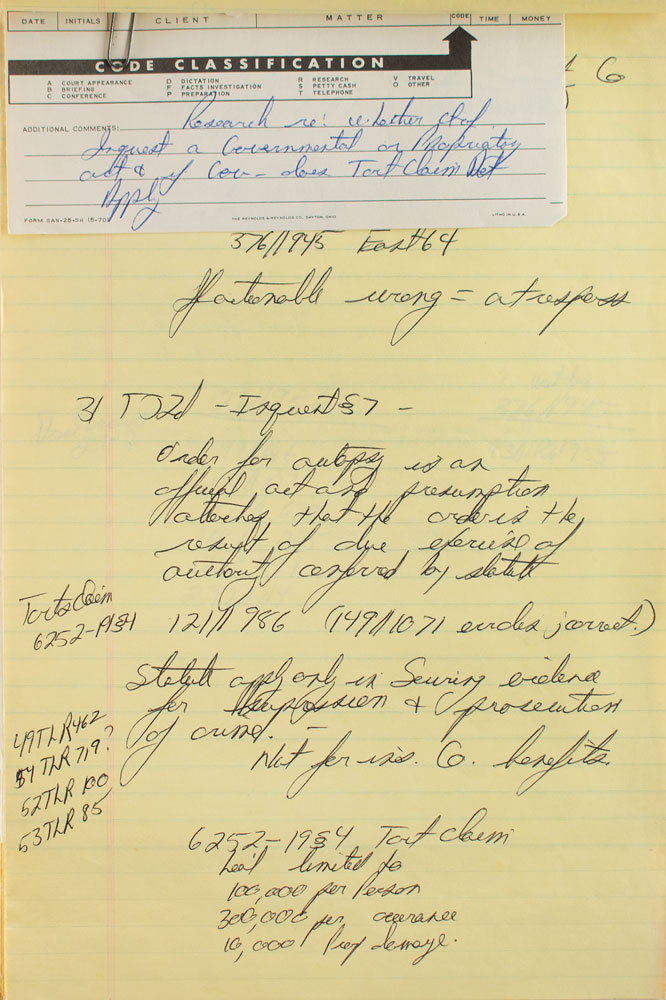 DATE INITIALS CLIENT MATTER CODE TIME MONEY
CODE CLASSIFICATION
A COURT APPEARANCE D DICTATION R RESEARCH V TRAVEL
B BRIEFING F FACTS INVESTIGATION S PETTY CASH O OTHER
C CONFERENCE P PREPARATION T TELEPHONE
ADDITIONAL COMMENTS: Research re: whether
Inquest a Governmental or Proprietary
act & if Gov- does Tort Claim Act
Apply
FORM SAN-25-SH (5-70) THE REYNOLDS & REYNOLDS CO., DAYTON, OHIO LITHO IN U.S.A.
6
376//1945 East 64
actionable wrong = a trespass
31 TJ2d - Inquest §7 -
Order for autopsy is an
official act and presumption
attaches that the order is the
result of due exercise of
authority conferred by statute
Torts Claim
6252-19§4
121//986 (149//1071 correct.)
Statute apply only in securing evidence
for suppression & prosecution
of crime. -
Not for ins. Co. benefits.
49 TLR 462
54 TLR 719?
52 TLR 100
53 TLR 85
6252-19§4 Tort Claim
limited to
100,000 per Person
300,000 per occurance
10,000 Prop damage.